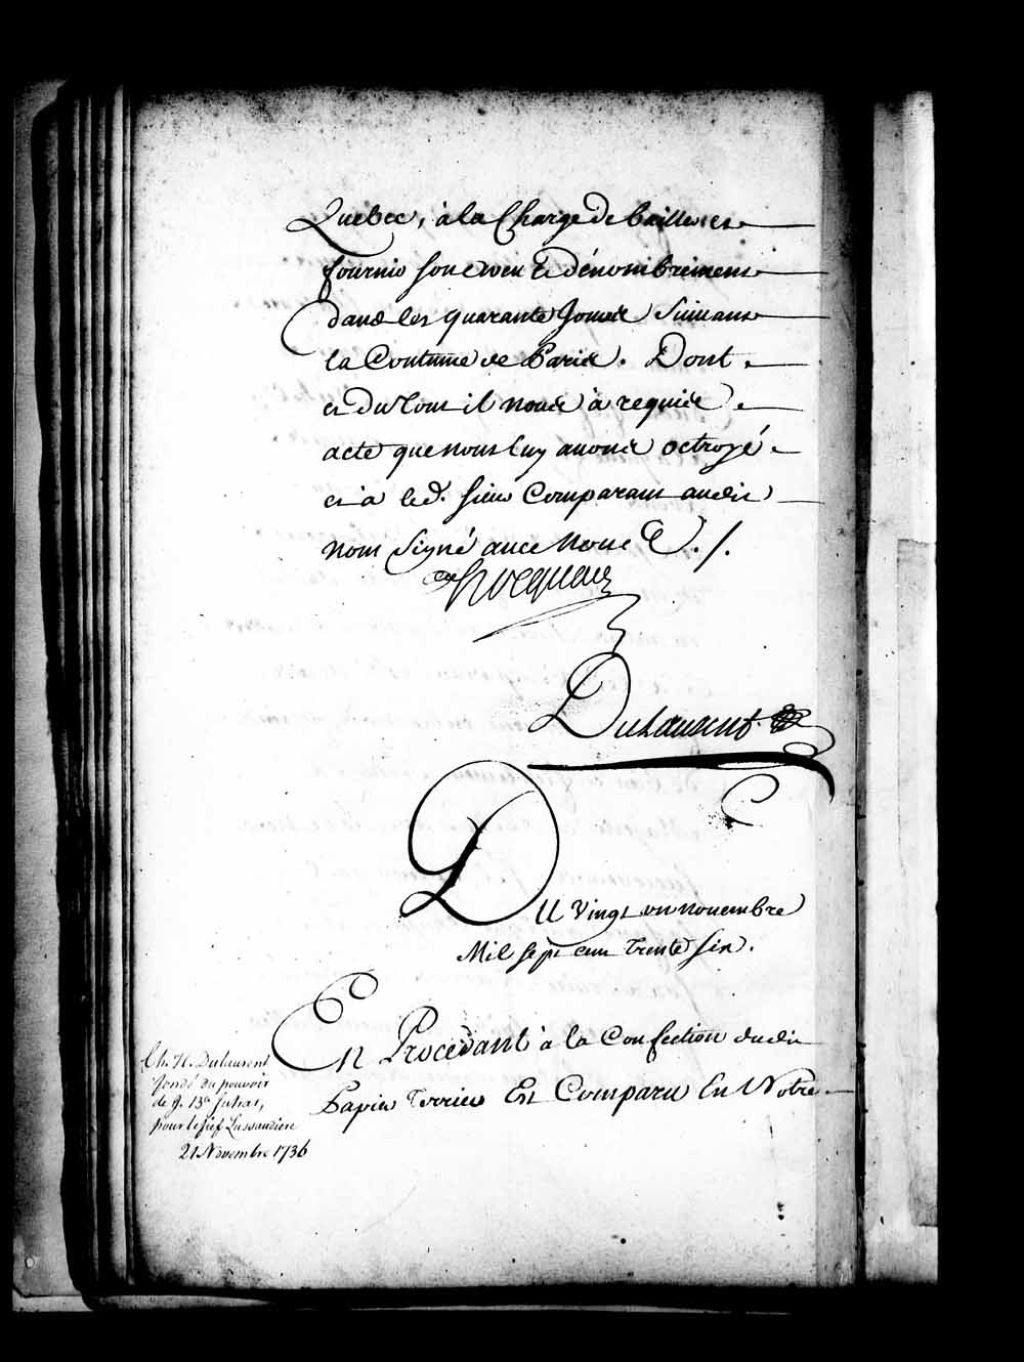 Quebec, à la Charge de bailler et
fournir son aveu & dénombrement
dans les quarante Jours Suivant
la Coutume de Paris. Dont
et du tout il nous a requis
acte que nous luy avons octroyé
et a led. sieur Comparant audit
nom Signé avec Nous &./.
Hocquart
DuLaurent
DU Vingt un novembre
Mil sept cent trente six.
En Procedant à la Confection dudit
Papier Terrier Est Comparu En Notre
Ch. H. Dulaurent
fondé du pouvoir
de J. Bte
pour le fief Lussaudiere
21 Novembre 1736